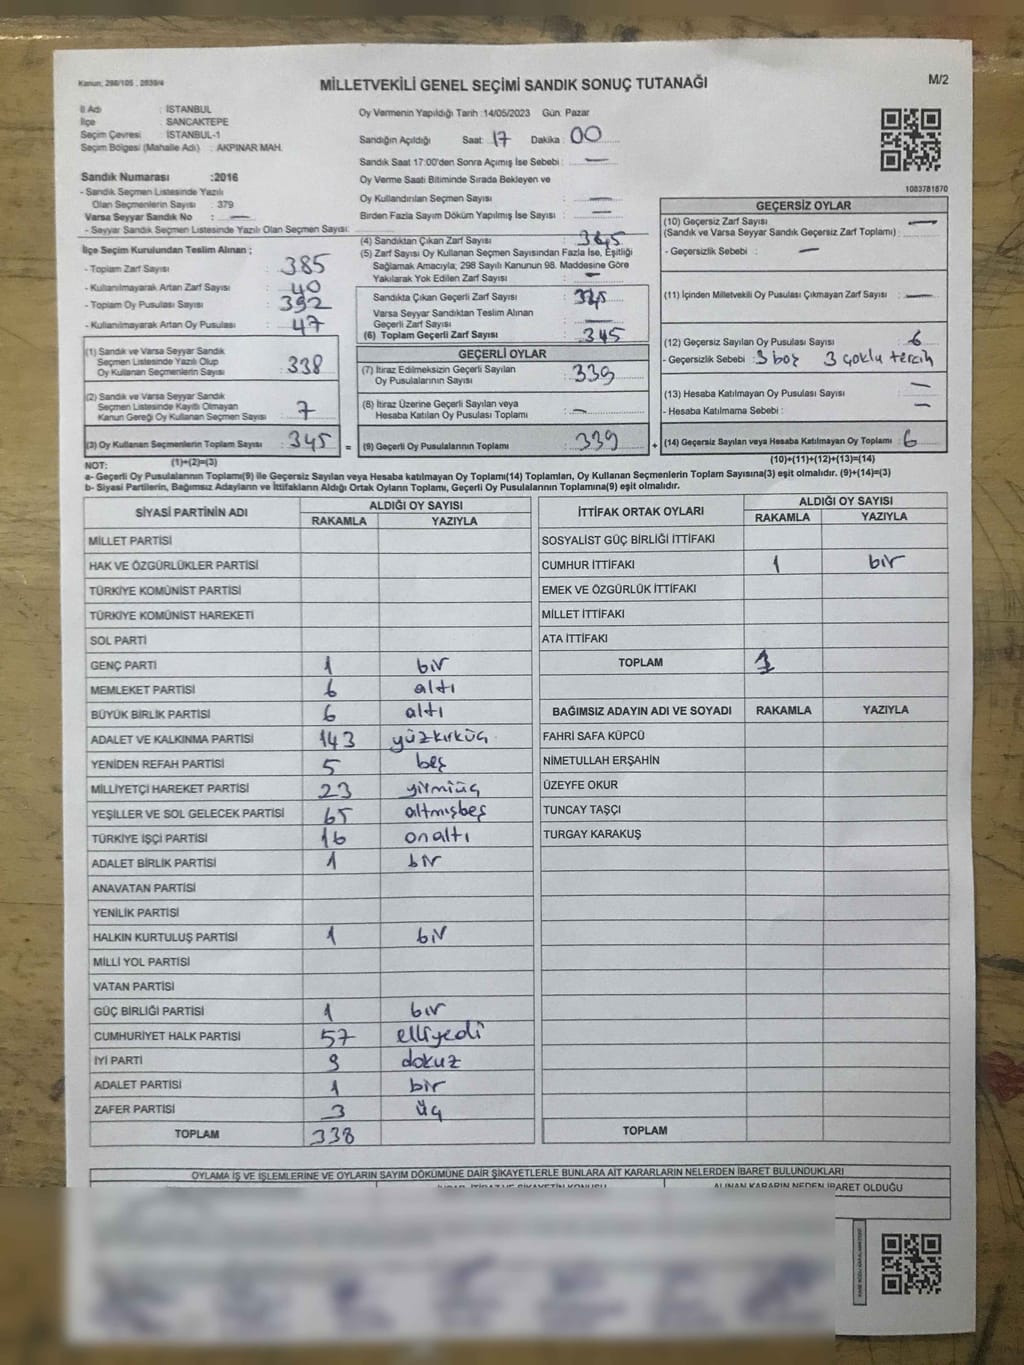 Kanun; 298/105 , 2839/4
MİLLETVEKİLİ GENEL SEÇİMİ SANDIK SONUÇ TUTANAĞI
M/2
İl Adı : İSTANBUL
İlçe : SANCAKTEPE
Seçim Çevresi : İSTANBUL-1
Seçim Bölgesi (Mahalle Adı) : AKPINAR MAH.
Oy Vermenin Yapıldığı Tarih :14/05/2023 Gün: Pazar
Sandığın Açıldığı Saat: 17 Dakika : 00
Sandık Saat 17:00'den Sonra Açımış İse Sebebi : —
Oy Verme Saati Bitiminde Sırada Bekleyen ve
Oy Kullandırılan Seçmen Sayısı : —
Birden Fazla Sayım Döküm Yapılmış İse Sayısı : —
1083781870
Sandık Numarası :2016
- Sandık Seçmen Listesinde Yazılı
Olan Seçmenlerin Sayısı : 379
Varsa Seyyar Sandık No : —
- Seyyar Sandık Seçmen Listesinde Yazılı Olan Seçmen Sayısı:
İlçe Seçim Kurulundan Teslim Alınan ;
- Toplam Zarf Sayısı : 385
- Kullanılmayarak Artan Zarf Sayısı : 40
- Toplam Oy Pusulası Sayısı : 392
- Kullanılmayarak Artan Oy Pusulası : 47
(1) Sandık ve Varsa Seyyar Sandık
Seçmen Listesinde Yazılı Olup
Oy Kullanan Seçmenlerin Sayısı : 338
(2) Sandık ve Varsa Seyyar Sandık
Seçmen Listesinde Kayıtlı Olmayan
Kanun Gereği Oy Kullanan Seçmen Sayısı : 7
(3) Oy Kullanan Seçmenlerin Toplam Sayısı : 345 =
(1)+(2)=(3)
(4) Sandıktan Çıkan Zarf Sayısı : 345
(5) Zarf Sayısı Oy Kullanan Seçmen Sayısından Fazla İse, Eşitliği
Sağlamak Amacıyla; 298 Sayılı Kanunun 98. Maddesine Göre
Yakılarak Yok Edilen Zarf Sayısı : —
Sandıkta Çıkan Geçerli Zarf Sayısı : 345
Varsa Seyyar Sandıktan Teslim Alınan
Geçerli Zarf Sayısı : —
(6) Toplam Geçerli Zarf Sayısı : 345
GEÇERLİ OYLAR
(7) İtiraz Edilmeksizin Geçerli Sayılan
Oy Pusulalarının Sayısı : 339
(8) İtiraz Üzerine Geçerli Sayılan veya
Hesaba Katılan Oy Pusulası Toplamı : —
(9) Geçerli Oy Pusulalarının Toplamı : 339 +
GEÇERSİZ OYLAR
(10) Geçersiz Zarf Sayısı —
(Sandık ve Varsa Seyyar Sandık Geçersiz Zarf Toplamı) :
- Geçersizlik Sebebi : —
(11) İçinden Milletvekili Oy Pusulası Çıkmayan Zarf Sayısı : —
(12) Geçersiz Sayılan Oy Pusulası Sayısı : 6
- Geçersizlik Sebebi : 3 boş 3 çoklu tercih
(13) Hesaba Katılmayan Oy Pusulası Sayısı : —
- Hesaba Katılmama Sebebi : —
(14) Geçersiz Sayılan veya Hesaba Katılmayan Oy Toplamı : 6
(10)+(11)+(12)+(13)=(14)
NOT:
a- Geçerli Oy Pusulalarının Toplamı(9) ile Geçersiz Sayılan veya Hesaba katılmayan Oy Toplamı(14) Toplamları, Oy Kullanan Seçmenlerin Toplam Sayısına(3) eşit olmalıdır. (9)+(14)=(3)
b- Siyasi Partilerin, Bağımsız Adayların ve İttifakların Aldığı Ortak Oyların Toplamı, Geçerli Oy Pusulalarının Toplamına(9) eşit olmalıdır.
SİYASİ PARTİNİN ADI ALDIĞI OY SAYISI
RAKAMLA YAZIYLA
MİLLET PARTİSİ
HAK VE ÖZGÜRLÜKLER PARTİSİ
TÜRKİYE KOMÜNİST PARTİSİ
TÜRKİYE KOMÜNİST HAREKETİ
SOL PARTİ
GENÇ PARTİ 1 bir
MEMLEKET PARTİSİ 6 altı
BÜYÜK BİRLİK PARTİSİ 6 altı
ADALET VE KALKINMA PARTİSİ 143 yüzkırküç
YENİDEN REFAH PARTİSİ 5 beş
MİLLİYETÇİ HAREKET PARTİSİ 23 yirmiüç
YEŞİLLER VE SOL GELECEK PARTİSİ 65 altmışbeş
TÜRKİYE İŞÇİ PARTİSİ 16 onaltı
ADALET BİRLİK PARTİSİ 1 bir
ANAVATAN PARTİSİ
YENİLİK PARTİSİ
HALKIN KURTULUŞ PARTİSİ 1 bir
MİLLİ YOL PARTİSİ
VATAN PARTİSİ
GÜÇ BİRLİĞİ PARTİSİ 1 bir
CUMHURİYET HALK PARTİSİ 57 elliyedi
İYİ PARTİ 9 dokuz
ADALET PARTİSİ 1 bir
ZAFER PARTİSİ 3 üç
TOPLAM 338
İTTİFAK ORTAK OYLARI ALDIĞI OY SAYISI
RAKAMLA YAZIYLA
SOSYALİST GÜÇ BİRLİĞİ İTTİFAKI
CUMHUR İTTİFAKI 1 bir
EMEK VE ÖZGÜRLÜK İTTİFAKI
MİLLET İTTİFAKI
ATA İTTİFAKI
TOPLAM 1
BAĞIMSIZ ADAYIN ADI VE SOYADI RAKAMLA YAZIYLA
FAHRİ SAFA KÜPCÜ
NİMETULLAH ERŞAHİN
ÜZEYFE OKUR
TUNCAY TAŞÇI
TURGAY KARAKUŞ
TOPLAM
OYLAMA İŞ VE İŞLEMLERİNE VE OYLARIN SAYIM DÖKÜMÜNE DAİR ŞİKAYETLERLE BUNLARA AİT KARARLARIN NELERDEN İBARET BULUNDUKLARI
ALINAN KARARIN NEDEN İBARET OLDUĞU